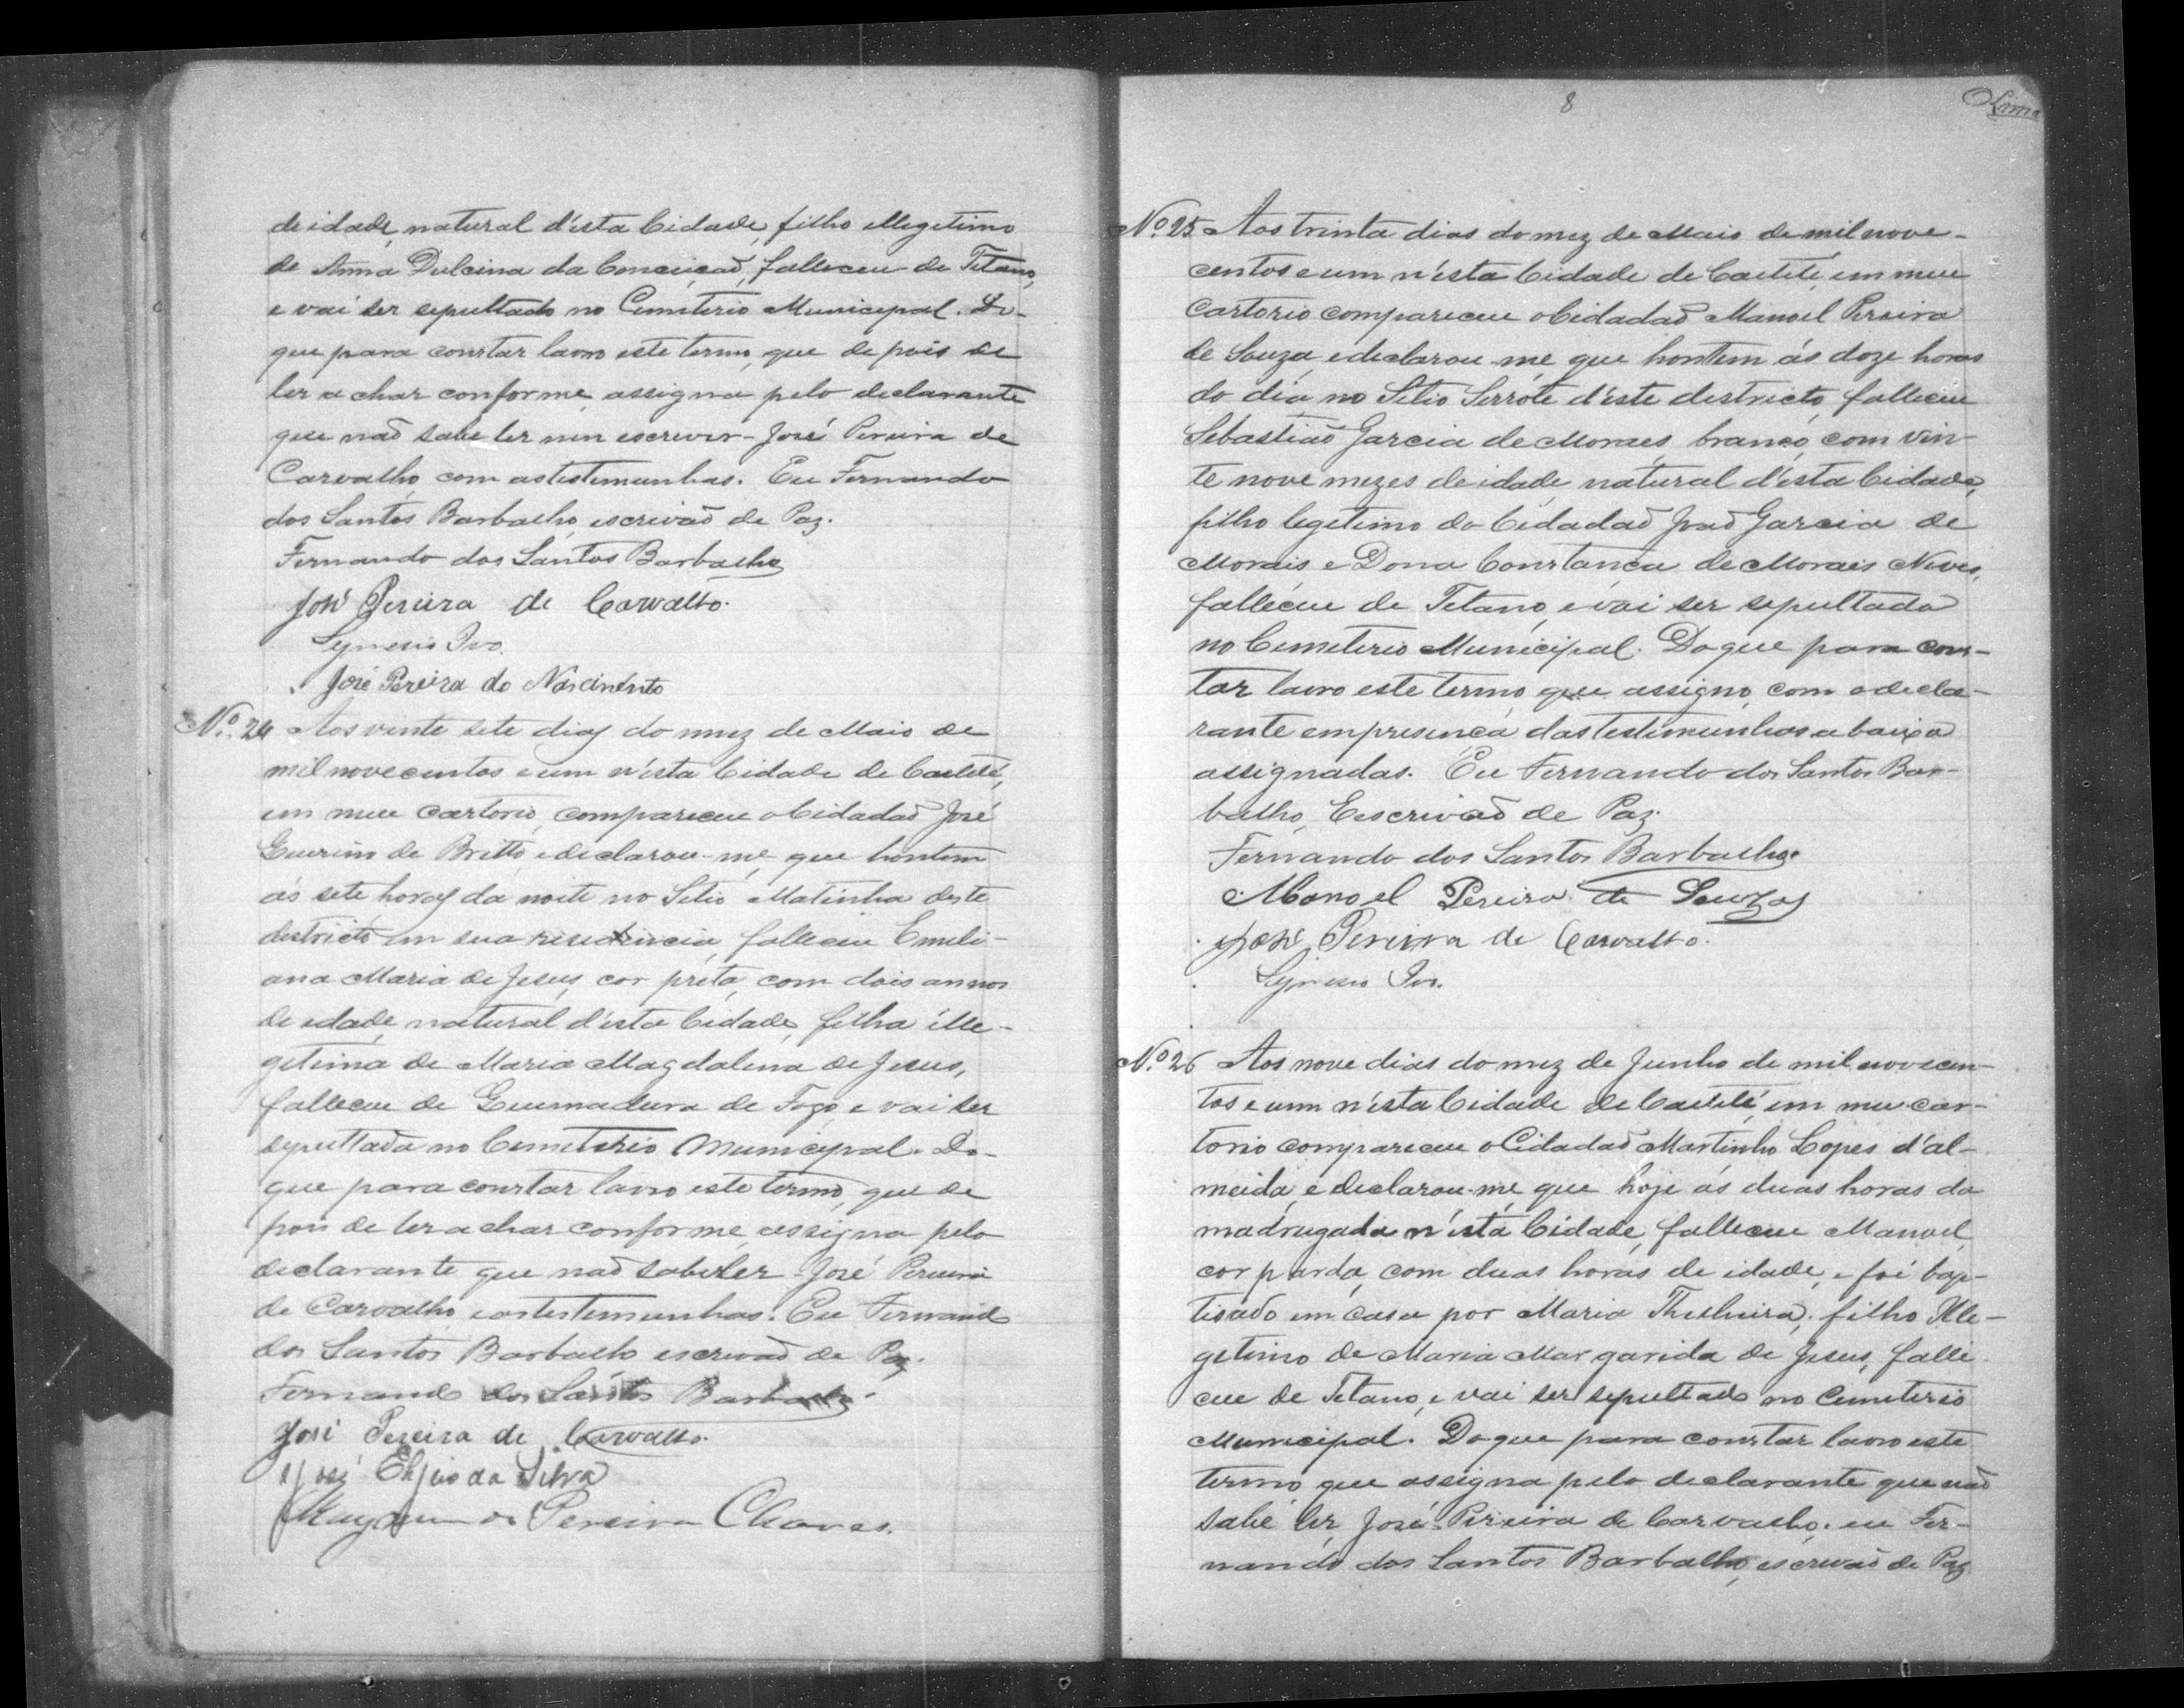 de idade, natural d'ésta Cidade, filho illegetimo
de Anna Dulcina da Conceiçaõ, falleceu de Tetano,
e vai ser sepultado no Cemiterio Municipal. Do-
que para constar lavro este termo, que depois de
ler e achar conforme, assigna pelo declarante
que naõ sabe ler nem escrever - José Pereira de
Carvalho, com as testemunhas. Eu Fernando
dos Santos Barbalho, escrivaõ de Paz.
Fernando dos Santos Barbalho
José Pereira de Carvalho.
Ivo.
José Pereira do Nascimento
Nº. 24 Aos vinte sete dias do mez de Maio de
mil novecentos e um n'ésta Cidade de Caeteté,
em meu cartorio, compareceu o Cidadaõ José
Guerino de Britto, e declarou-me, que hontem
ás sete horas da noite no Sitio Matinha deste
districto em sua residencia, falleceu Emili-
ana Maria de Jesus, cor preta, com dois annos
de edade, natural d'ésta Cidade, filha ille-
getima de Maria Magdalena de Jesus,
falleceu de Queimadura de Fogo, e vai ser
sepultada no Cemiterio Municipal. Do-
que para constar lavro este termo, que de
pois de ler a char conforme, assigna pelo
declarante que naõ sabe ler - José Pereira
de Carvalho e as testemunhas. Eu Fernando
dos Santos Barbalho escrivaõ de Paz.
Fernando dos Santos Barbalho
José Pereira de Carvalho.
José da Silva
Pereira Chaves.
8
Lima
Nº. 25 Aos trinta dias do mez de Maio de mil nove-
centos e um n'ésta Cidade de Caeteté, em meu
Cartorio compareceu o Cidadaõ Manoel Pereira
de Souza, e declarou-me, que hontem ás doze horas
do dia no Sitio Serrote d'éste destricto, falleceu
Sebastiaõ Garcia de Moraes, branco, com vin-
te nove mezes de idade, natural d'ésta Cidade,
filho legetimo do Cidadaõ Joaõ Garcia de
Morais e Dona Constança de Morais Neves,
falleceu de Tetano, e vai ser sepultado
no Cemeterio Municipal. Do que para cons-
tar lavro este termo, que assigno, com o decla-
rante em presença das testimunhas a baixo
assignadas. Eu Fernando dos Santos Bar-
balho, Escrivaõ de Paz.
Fernando dos Santos Barbalho.
Manoel Pereira de Souza
José Pereira de Carvalho.
Ivo.
Nº. 26 Aos nove dias do mez de Junho de mil novecen-
tos e um n'ésta Cidade de Caeteté, em meu car-
torio compareceu o Cidadaõ Martinho Lopes d'al-
meida, e declarou-me, que hoje ás duas horas da
madrugada n'ésta Cidade, falleceu Manoel,
cor parda, com duas horas de idade, e foi bap-
tisado em casa por Maria filho Ille-
getimo de Maria Margarida de Jesus, falle-
ceu de Tetano, e vai ser sepultado no Cemeterio
Municipal. Do que para constar lavro este
termo que assigna pelo declarante que naõ
sabe ler, José Pereira de Carvalho. eu Fer-
nando dos Santos Barbalho, escrivaõ de Paz